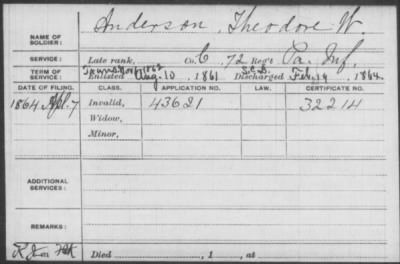 NAME OF SOLDIER: Anderson, Theodore W.
SERVICE: Late rank, Co. C, 72 Reg't Pa. Inf.
TERM OF SERVICE: Enlisted Aug. 10, 1861 Discharged Feb. 14, 1864
DATE OF FILING. CLASS. APPLICATION NO. LAW. CERTIFICATE NO.
1864 Apl. 7 Invalid, 43621 32214
Widow,
Minor,
ADDITIONAL SERVICES:
REMARKS:
Died , 1 , at